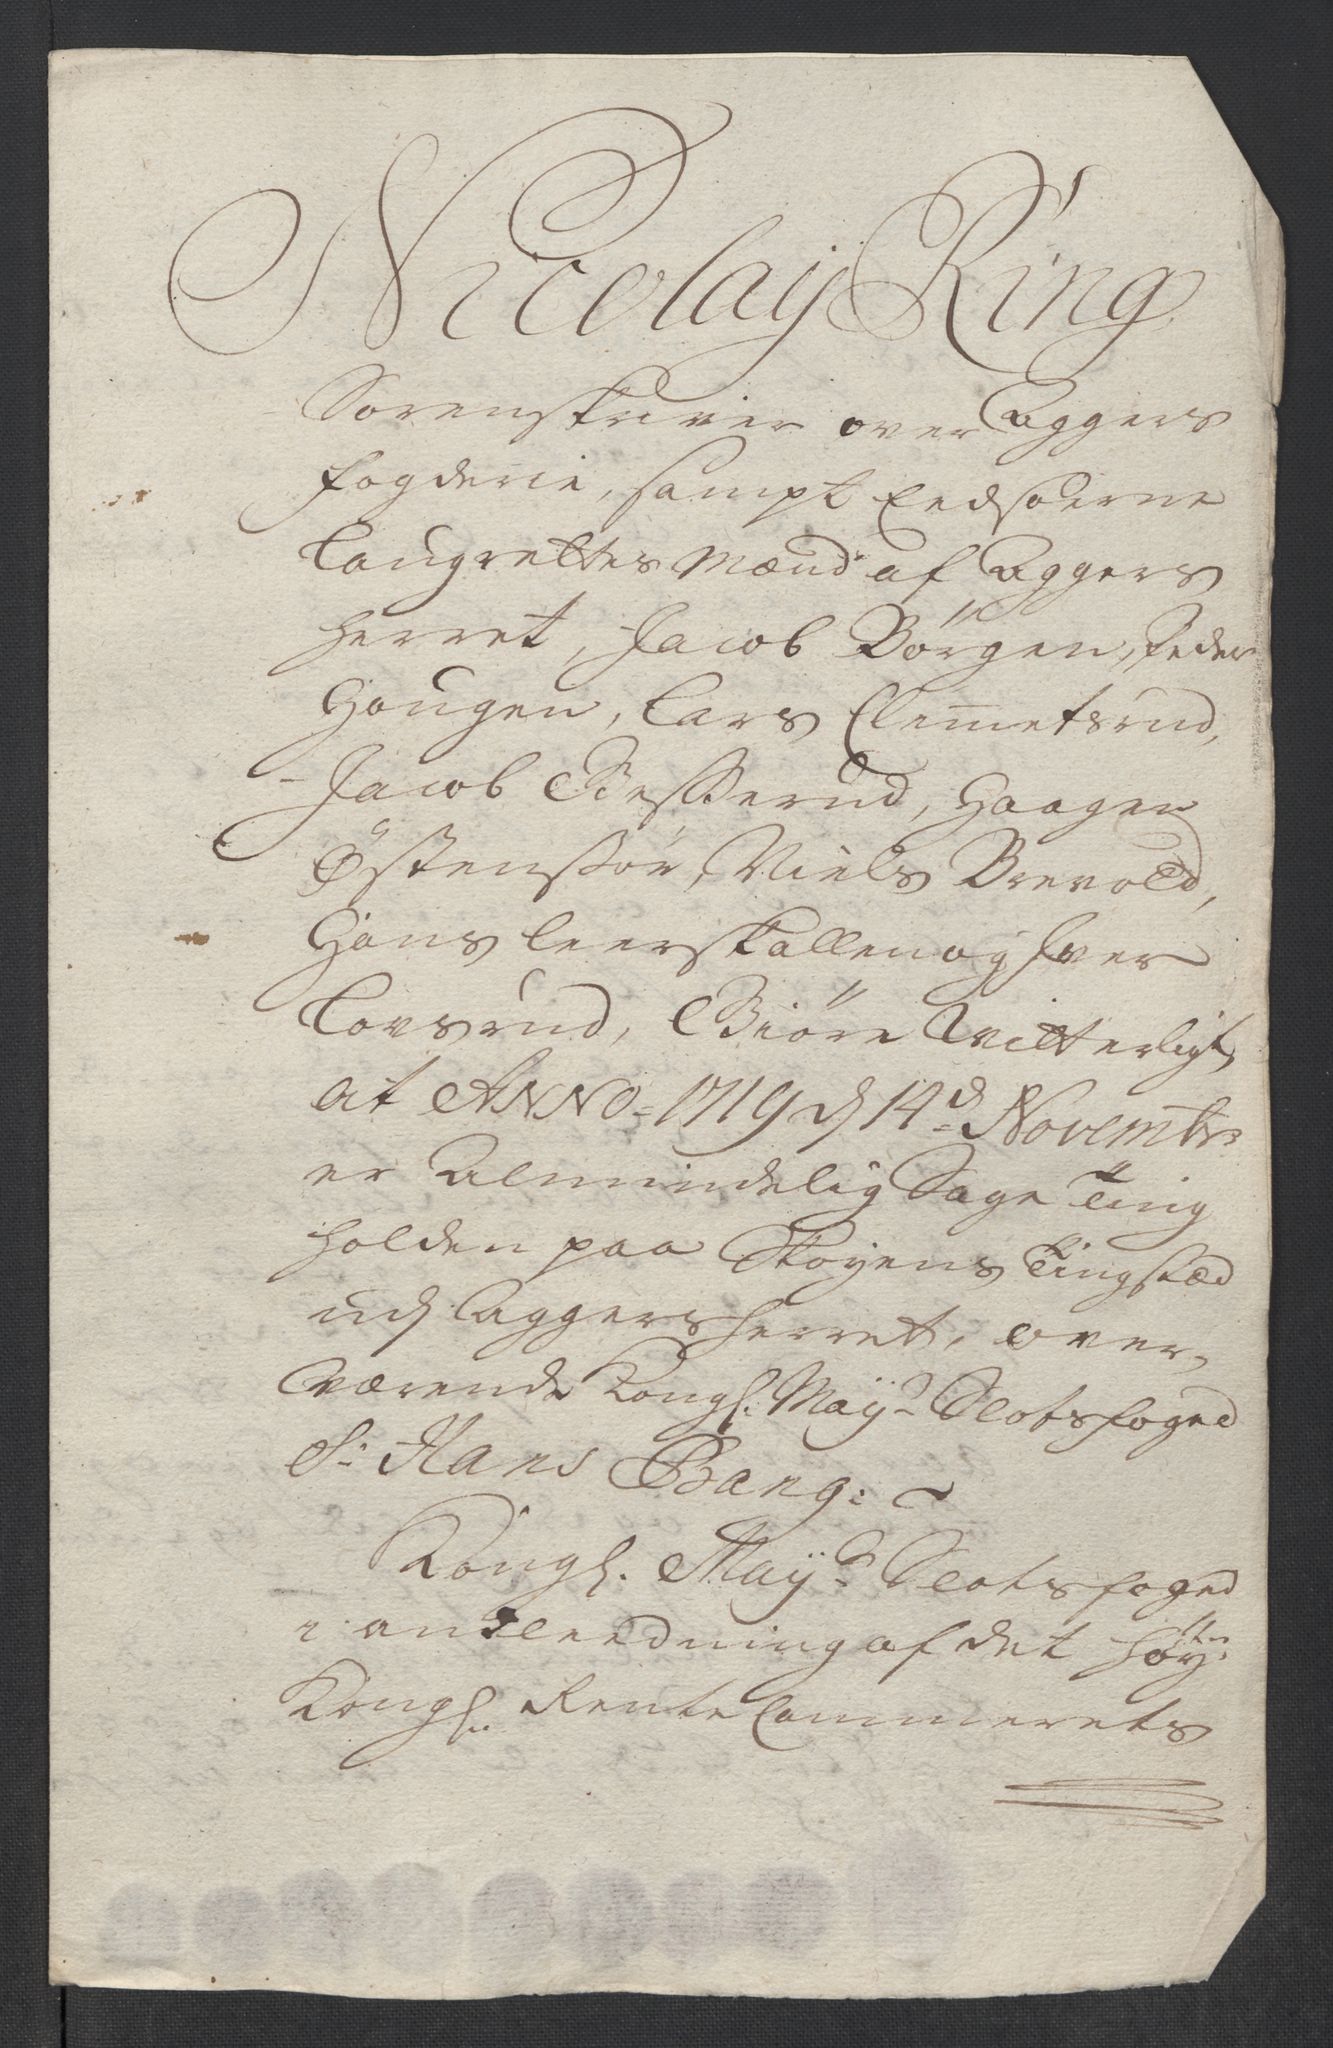 Nicolaÿ Ring
Sorenskriver over Aggers
fogderie, sampt Eedsoerne
Laugrettes Mænd af Aggers
herret, Jacob Börgen, Peder
Hougen, Lars Clem̅etsrud,
Jacob Besserud, Haagen
Østensiör, Niels Brevold,
Hans Leerskallen og Iver
Lovsrud, Giöre Witterligt,
at ANNO 1719 d 14d Novembr
er Almindelig Sage Ting
holden paa Skøyens Tingstæd
udj Aggersherret, over,,
værende Kongl. Maÿs Slotsfoged
Sr Hans Bang:
Kongl. Maÿs Slotsfoged
i anleedning af det høÿ:
Kongl. Rente Cammerets